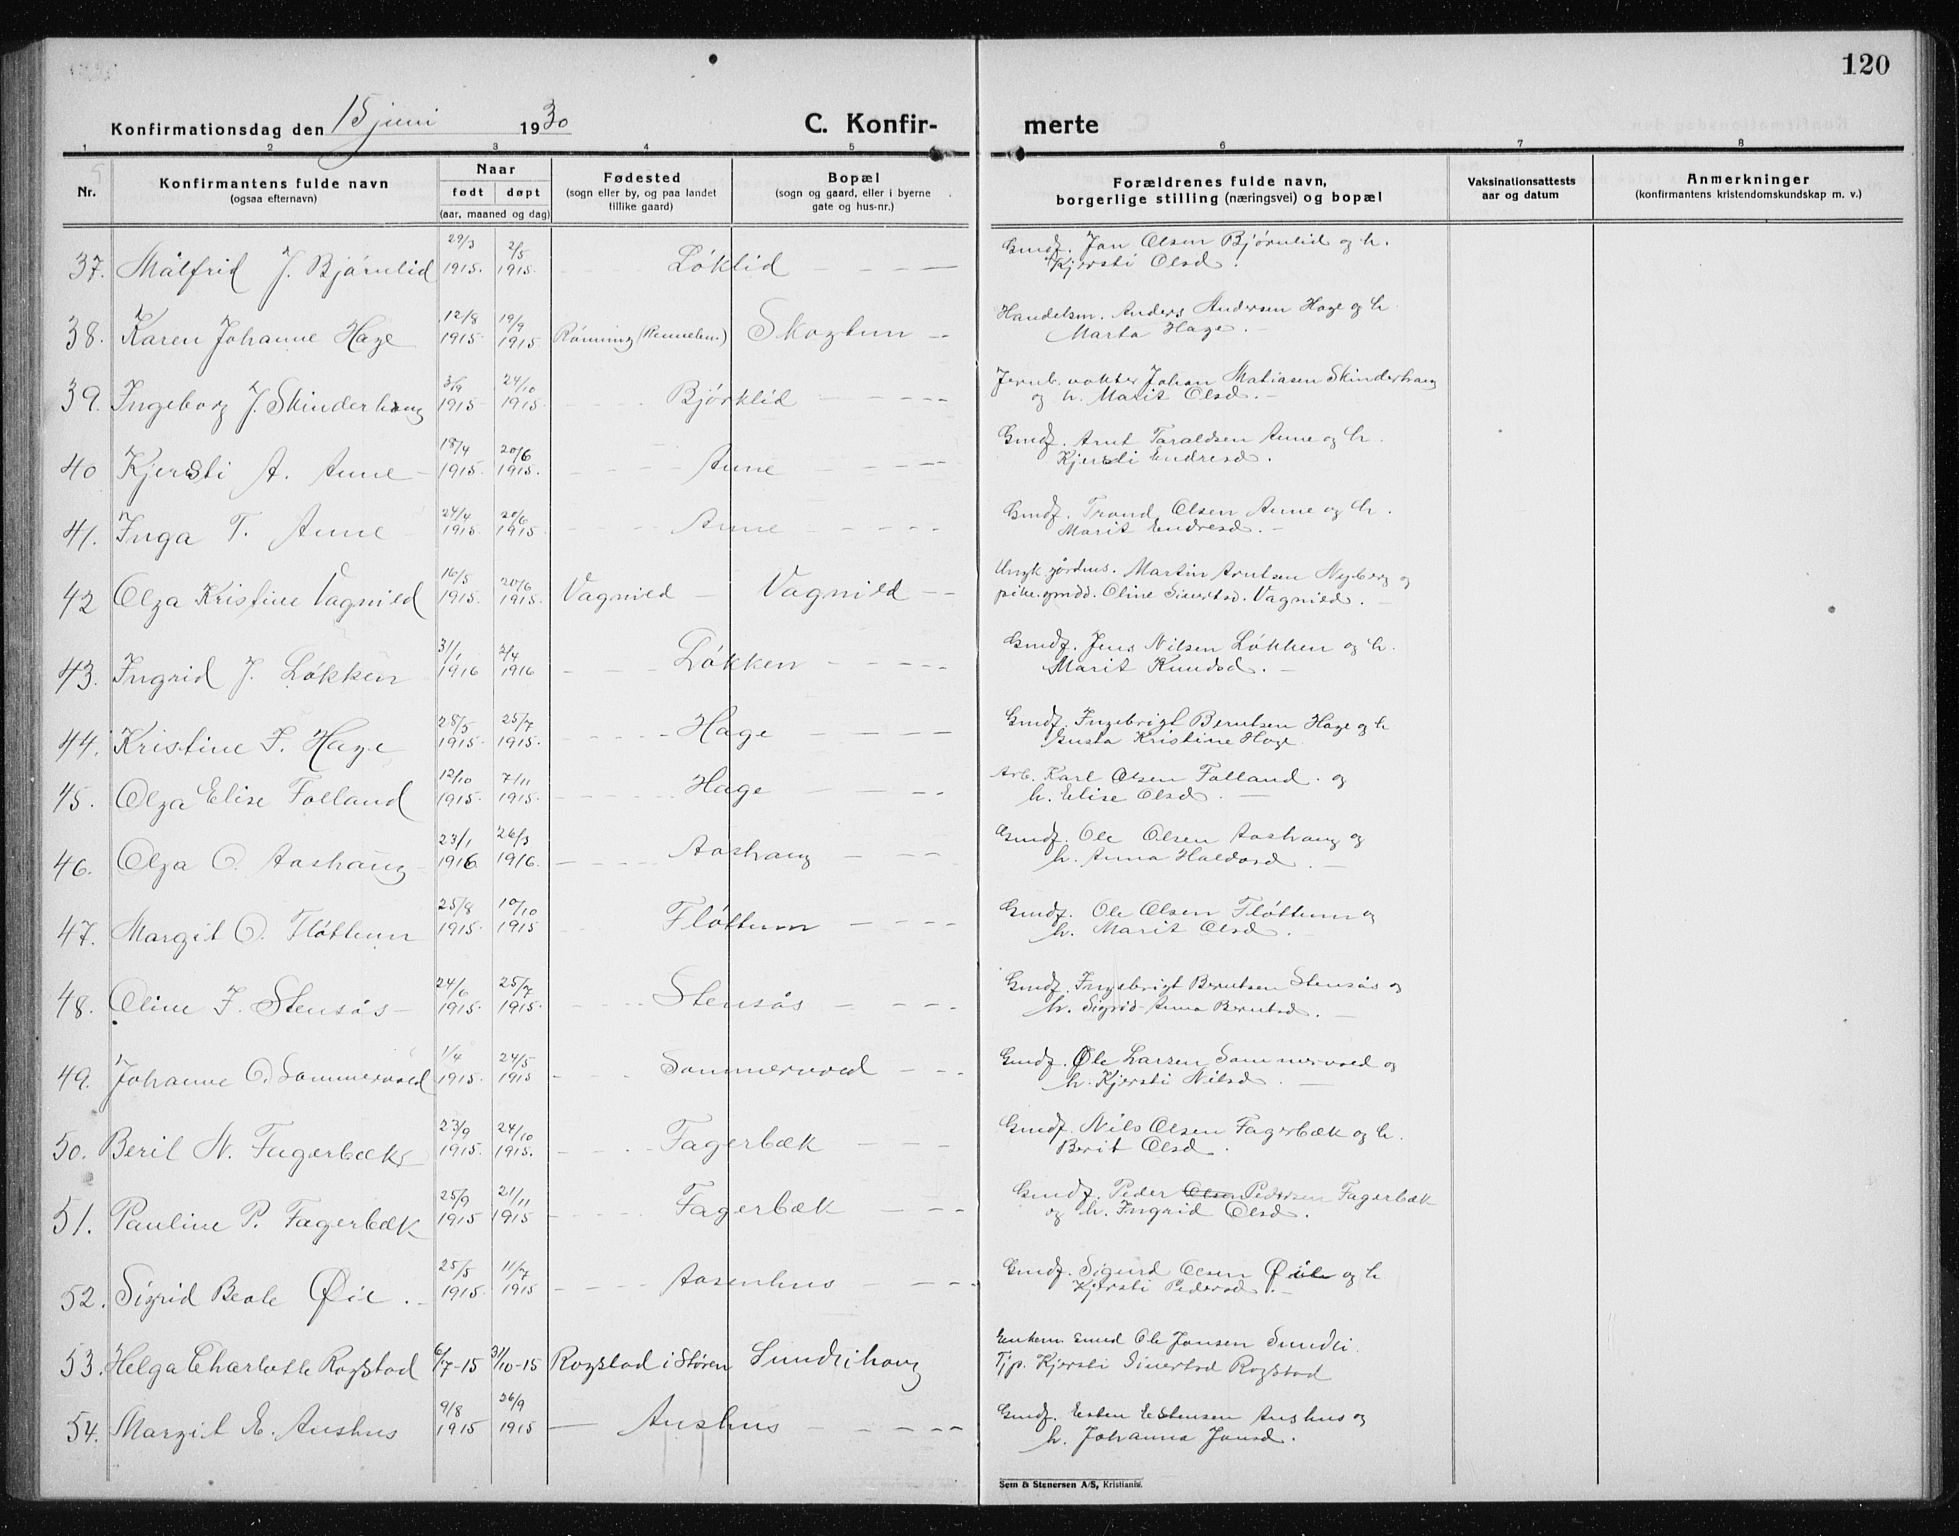 120
Konfirmationsdag den 15 juni 1930
C. Konfir- merte
1 2 3 4 5 6 7 8
Nr.
Konfirmantens fulde navn
(ogsaa efternavn)
Naar
født døpt
(aar, maaned og dag)
Fødested
(sogn eller by, og paa landet
tillike gaard)
Bopæl
(sogn og gaard, eller i byerne
gate og hus-nr.)
Forældrenes fulde navn,
borgerlige stilling (næringsvei) og bopæl
Vaksinationsattests
aar og datum
Anmerkninger
(konfirmantens kristendomskundskap m. v.)
37. Målfrid J. Bjørnlid 29/3 1915. 2/5 1915. Løklid
Gmdf. Jon Olsen Bjørnlid og h.
Kjersti Olsd.
38. Karen Johanne Hage 12/8 1915. 19/9 1915. Rønning (Rennebu.) Skogtun
Handelsm. Anders Andersen Hage og h.
Marta Hage.
39. Ingeborg J. Skinderhaug 3/9 1915. 24/10 1915. Bjørklid
Jernb. vokter Johan Matiasen Skinderhaug
og h. Marit Olsd.
40 Kjersti A. Aune 18/4 1915. 20/6 1915. Aune
Gmdf. Arnt Taraldsen Aune og h.
Kjersti Endresd.
41. Inga T. Aune 24/4 1915. 20/6 1915. Aune
Gmdf. Trond Olsen Aune og h.
Marit Endresd.
42 Olga Kristine Vagnild 16/5 1915. 20/6 1915. Vagnild Vagnild
Ungk. Martin Arntsen Nyberg og
pike Oline Sivertsd. Vagnild.
43. Ingrid J. Løkken 31/1 1916 2/4 1916 Løkken
Gmdf. Jens Nilsen Løkken og h.
Marit Knudsd.
44. Kristine I. Hage 28/5 1915. 25/7 1915. Hage
Gmdf. Ingebrigt Berntsen Hage og h
Gusta Kristine Hage
45. Olga Elise Folland 12/10 1915. 7/11 1915. Hage
Arb. Karl Olsen Folland. og
h. Elise Olsd.
46. Olga O. Aashaug 23/1 1916. 26/3 1916. Aashaug
Gmdf. Ole Olsen Aashaug og
h. Anna Haldosd.
47. Margit O. Fløttum 25/8 1915. 10/10 1915 Fløttum
Gmdf. Ole Olsen Fløttum og
h. Marit Olsd.
48. Oline I. Stensås 24/6 1915. 25/7 1915. Stensås
Gmdf. Ingebrigt Berntsen Stensås og
h. Sigrid Anna Berntsd.
49. Johanne O. Sommervold 1/4 1915. 24/5 1915 Sommervold
Gmdf. Ole Larsen Sommervold og
h. Kjersti Nilsd.
50. Beril N. Fagerbæk 23/9 1915. 24/10 1915. Fagerbæk
Gmdf. Nils Olsen Fagerbæk og h.
Berit Olsd.
51. Pauline P. Fagerbæk 25/9 1915 21/11 1915 Fagerbæk
Gmdf. Peder Olsen Pedersen Fagerbæk
og h. Ingrid Olsd.
52. Sigrid Beate Øie. 25/5 1915. 11/7 1915 Aasenhus
Gmdf. Sigurd Olsen Øie og h
Kjersti Pedersd.
53. Helga Charlotte Rogstad 6/7-15 31/10-15 Rogstad i Støren Sundlihaug
Enkem. Ole Jonsen Sundli.
Tjp. Kjersti Sivertsd Rogstad
54. Margit E. Aushus 9/8 1915 26/9 1915 Aushus
Gmdf. Esten Estensen Aushus og
h. Johanna Jonsd.
Sem & Stenersen A/S, Kristiania.